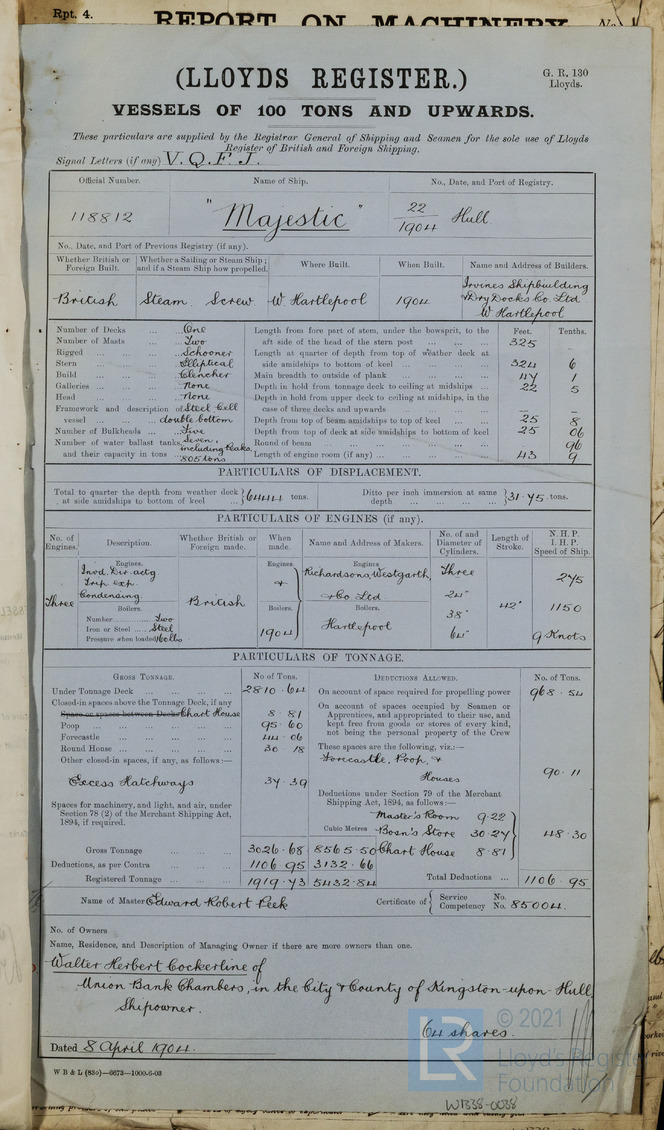 Rpt. 4.
REPORT ON MACHINERY
No.
(LLOYDS REGISTER.)
G. R. 130
Lloyds.
VESSELS OF 100 TONS AND UPWARDS.
These particulars are supplied by the Registrar General of Shipping and Seamen for the sole use of Lloyds
Register of British and Foreign Shipping.
Signal Letters (if any) V.Q.F.J.
Official Number. Name of Ship. No., Date, and Port of Registry.
118812 "Majestic" 22/1904 Hull
No., Date, and Port of Previous Registry (if any).
Whether British or Foreign Built. Whether a Sailing or Steam Ship; and if a Steam Ship how propelled. Where Built. When Built. Name and Address of Builders.
British Steam Screw W. Hartlepool 1904 Irvines Shipbuilding & Dry Docks Co. Ltd W. Hartlepool
Number of Decks ... ... One
Number of Masts ... Two
Rigged ... ... ... Schooner
Stern ... ... ... Elliptical
Build ... ... ... Clencher
Galleries ... ... ... None
Head ... ... ... None
Framework and description of vessel ... Steel Cell double bottom
Number of Bulkheads ... Five
Number of water ballast tanks, and their capacity in tons ... Seven, including Peaks. 805 tons
Feet. Tenths.
Length from fore part of stem, under the bowsprit, to the aft side of the head of the stern post ... 325 –
Length at quarter of depth from top of weather deck at side amidships to bottom of keel ... 324 6
Main breadth to outside of plank ... 47 1
Depth in hold from tonnage deck to ceiling at midships ... 22 5
Depth in hold from upper deck to ceiling at midships, in the case of three decks and upwards ... – –
Depth from top of beam amidships to top of keel ... 25 8
Depth from top of deck at side amidships to bottom of keel 25 06
Round of beam ... 96
Length of engine room (if any) ... 43 9
PARTICULARS OF DISPLACEMENT.
Total to quarter the depth from weather deck at side amidships to bottom of keel ... } 6444 tons.
Ditto per inch immersion at same depth ... } 31.75 tons.
PARTICULARS OF ENGINES (if any).
No. of Engines. Description. Whether British or Foreign made. When made. Name and Address of Makers. No. of and Diameter of Cylinders. Length of Stroke. N.H.P. I.H.P. Speed of Ship.
Engines. Engines Engines
Three Invd Dir. actg Trip exp. Condensing.
British
Boilers. Boilers. Boilers.
Number ... Two
Iron or Steel ... Steel
Pressure when loaded 160 lbs
1904
Richardsons, Westgarth, & Co Ltd
Hartlepool
Three 24" 38" 64"
42"
275
1150
9 Knots
PARTICULARS OF TONNAGE.
GROSS TONNAGE. No of Tons.
Under Tonnage Deck ... 2810.64
Closed-in spaces above the Tonnage Deck, if any
Space or spaces between Decks Chart House 8.81
Poop ... 95.60
Forecastle ... 44.06
Round House ... 30.18
Other closed-in spaces, if any, as follows:—
Excess Hatchways 37.39
Spaces for machinery, and light, and air, under Section 78 (2) of the Merchant Shipping Act, 1894, if required.
Cubic Metres
Gross Tonnage ... 3026.68 8565.50
Deductions, as per Contra ... 1106.95 3132.66
Registered Tonnage ... 1919.73 5432.84
DEDUCTIONS ALLOWED. No. of Tons.
On account of space required for propelling power 968.54
On account of spaces occupied by Seamen or Apprentices, and appropriated to their use, and kept free from goods or stores of every kind, not being the personal property of the Crew
These spaces are the following, viz.:—
Forecastle, Poop, & Houses 90.11
Deductions under Section 79 of the Merchant Shipping Act, 1894, as follows:—
Master's Room 9.22
Bosn's Store 30.27
Chart House 8.81
48.30
Total Deductions ... 1106.95
Name of Master Edward Robert Peek
Certificate of { Service No. Competency No. 85004.
No. of Owners
Name, Residence, and Description of Managing Owner if there are more owners than one.
Walter Herbert Cockerline of
Union Bank Chambers, in the City & County of Kingston-upon-Hull,
Shipowner.
64 shares.
Dated 8 April 1904.
W B & L (83o)—6673—1000-6-03
LR
© 2021
Lloyd's Register
Foundation
W1338-0038